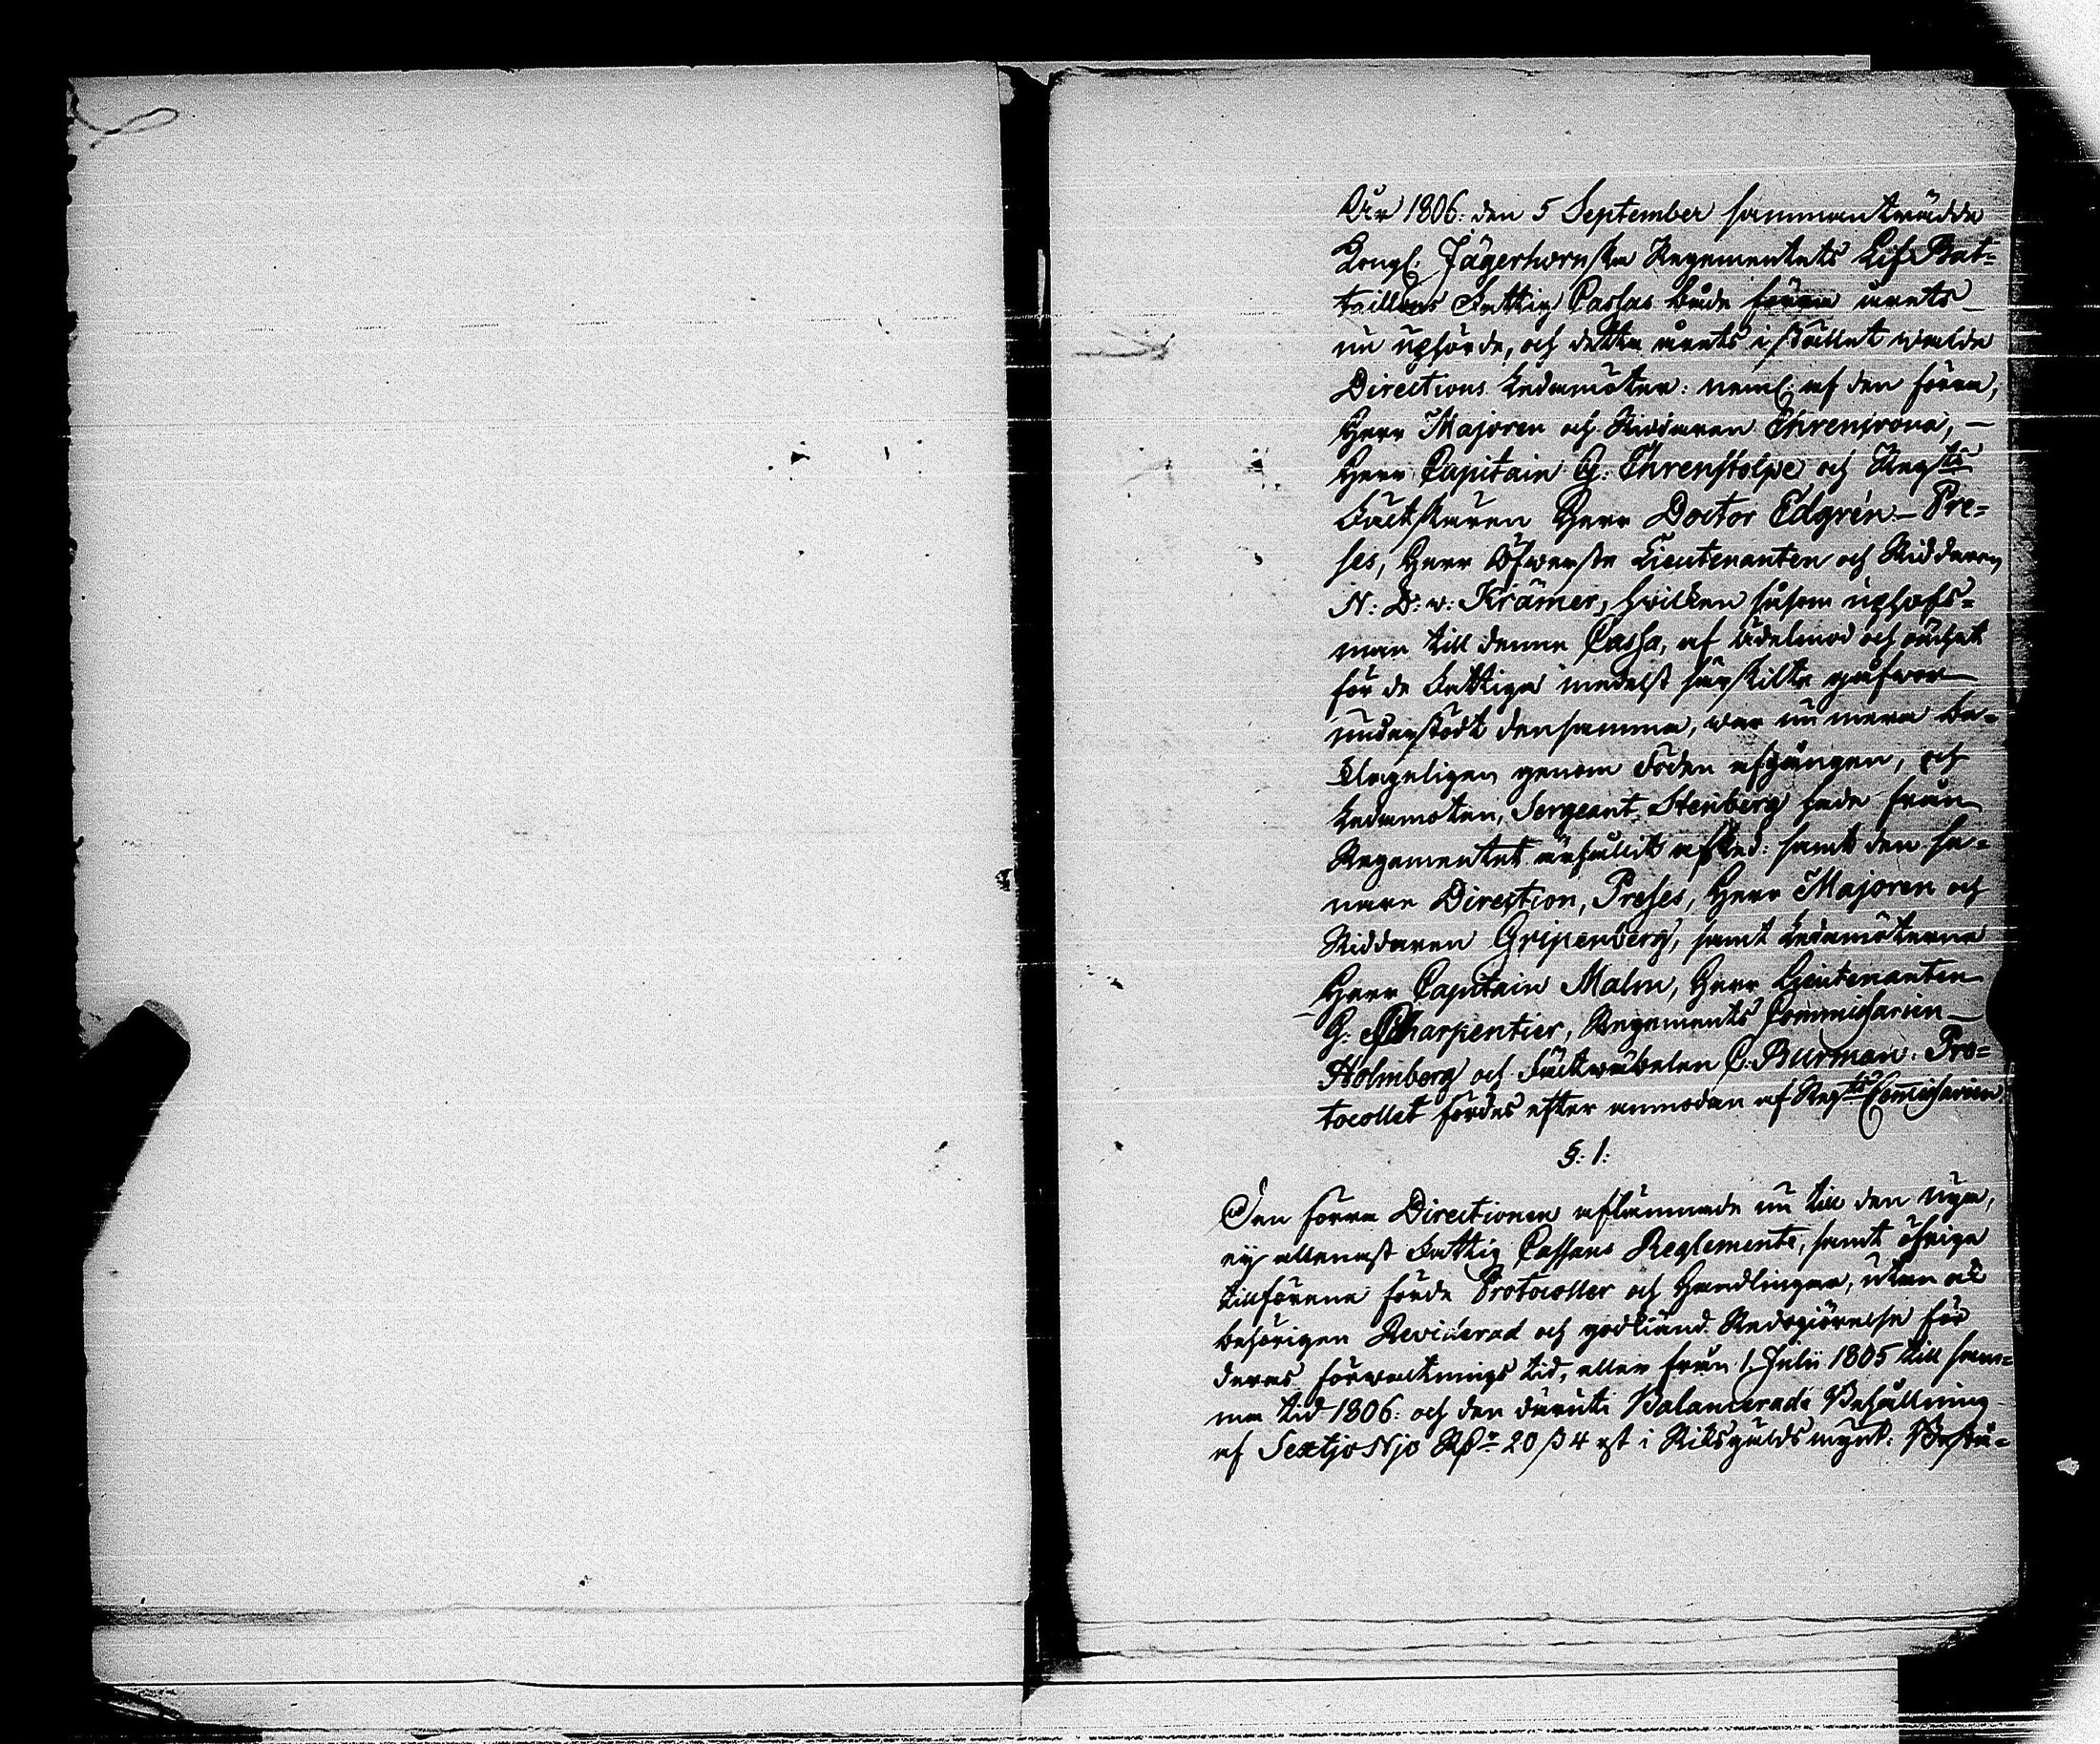 Åhr 1806. den 5 September sammanträdde
Kongl. Jägerhornska Regementets Lif Bat-
taillons Fattig Cassas både förra årets
nu uphörde, och detta årets i stället walde
Directions Ledamöter: neml. af den förra,
Herr Majoren och Riddaren Ehrenrooa, –
Herr Capitain G. Ehrenstolpe och Reg:ts
Fältskären Herr Doctor Edgrén – Pre-
ses, Herr Öfwerste Lieutenanten och Riddaren
N: D: v: Krämer, hvilken såsom uphofs-
man till denna Cassa, af ädelmod och nit
för de Fattiga medelst särskilte gåfwor
understödt densamma, war nu mera be-
klageligen genom döden afgången, och
Ledamoten, Sergeant Stenberg hade från
Regementet ärhållit afsked: samt den se-
nare Direction, Preses, Herr Majoren och
Riddaren Gripenberg, samt Ledamöterne
Herr Capitain Malm, Herr Lieutenanten
G. Charpentier, Regements Commissarien
Holmberg och Fältwäbelen C. Burman. Pro-
tocollet fördes efter anmodan af Reg:ts Commissarien
§. 1:
Den förra Directionen aflämnade nu till den nya,
ej allenast Fattig Cassans Reglemente, samt öfrige
tillförene förde Protocoller och Handlingar, utan ock
behörigen Reviderad och godkänd Redogiörelse för
deras förwaltnings tid, eller från 1. Julii 1805 till sam-
ma tid 1806: och den däruti Balancerade Behållning
af Sextjo Njo Rd:r 20 ß 4 rst i Riksgälds mynt. Bestå-